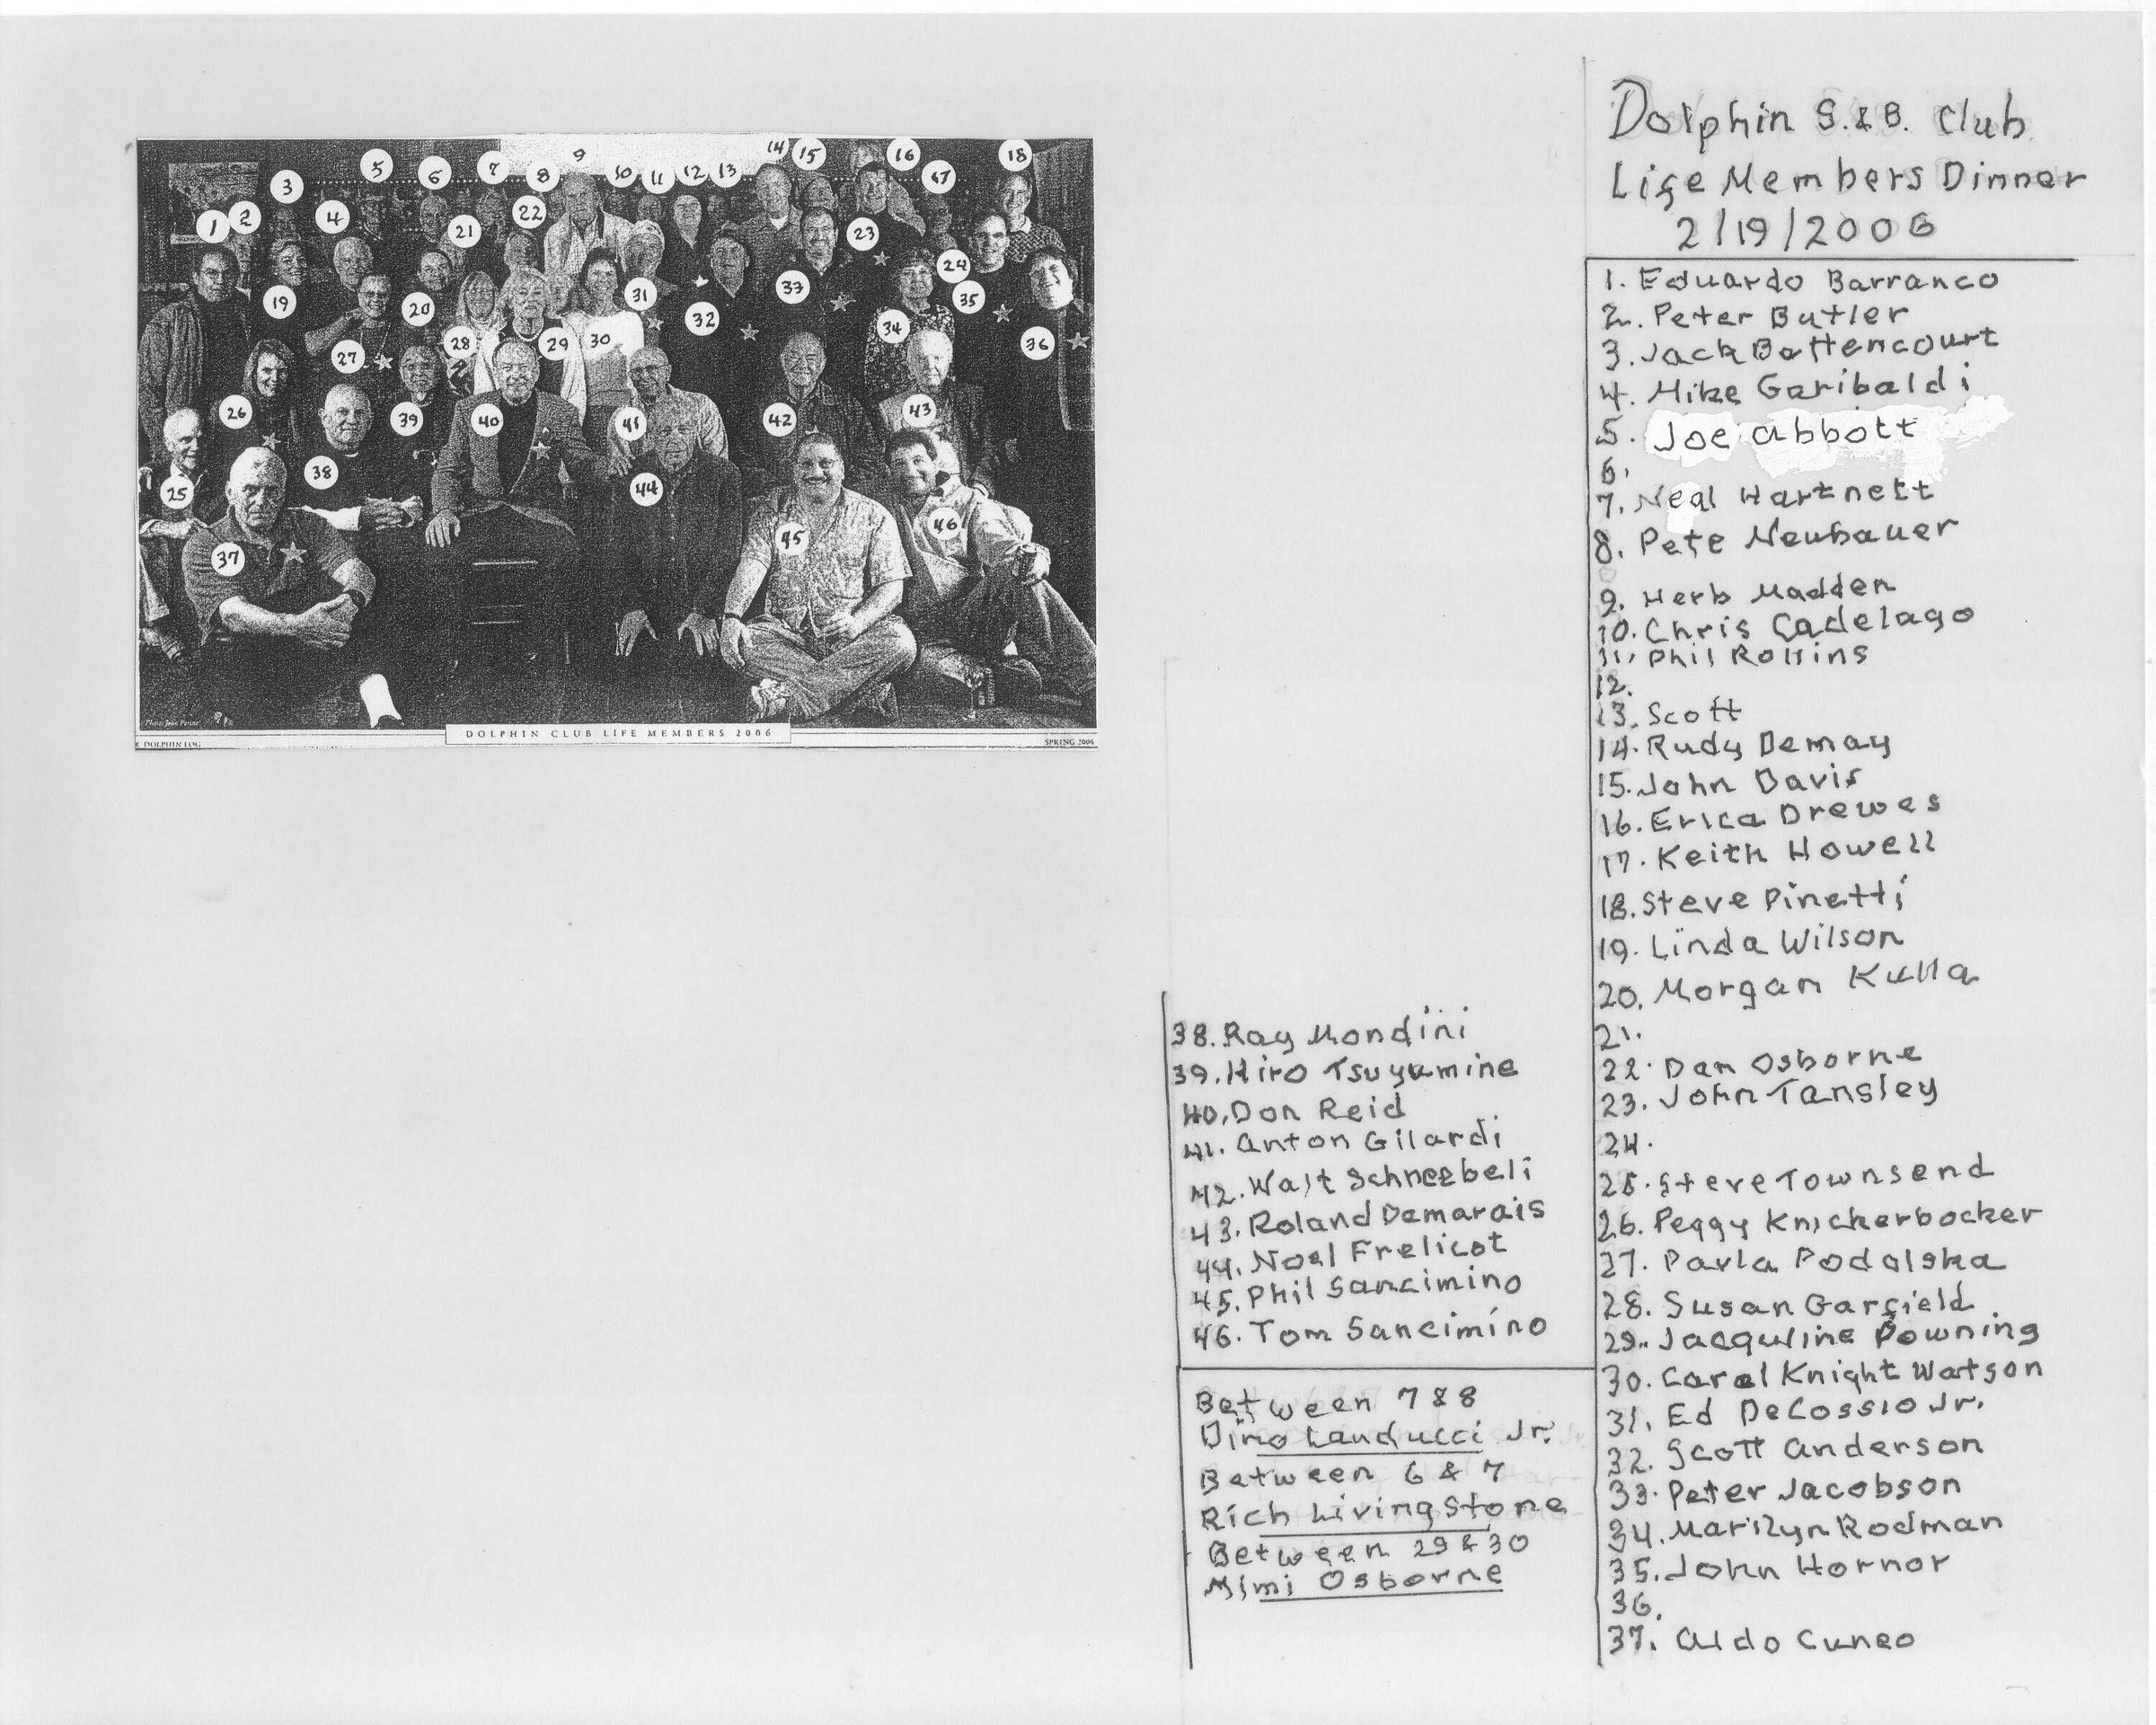 1
2
3
4
5
6
7
8
9
10
11
12
13
14
15
16
17
18
19
20
21
22
23
24
25
26
27
28
29
30
31
32
33
34
35
36
37
38
39
40
41
42
43
44
45
46
DOLPHIN CLUB LIFE MEMBERS 2006
DOLPHIN LOG
SPRING 2006
Dolphin S. & B. Club
Life Members Dinner
2/19/2006
1. Eduardo Barranco
2. Peter Butler
3. Jack Bettencourt
4. Mike Garibaldi
5. Joe Abbott
6.
7. Neal Hartnett
8. Pete Neubauer
9. Herb Madden
10. Chris Cadelago
11. Phil Rollins
12.
13. Scott
14. Rudy Demay
15. John Davis
16. Erica Drewes
17. Keith Howell
18. Steve Pinetti
19. Linda Wilson
20. Morgan Kulla
21.
22. Dan Osborne
23. John Tansley
24.
25. Steve Townsend
26. Peggy Knickerbocker
27. Pavla Podolska
28. Susan Garfield
29. Jacquline Downing
30. Carol Knight Watson
31. Ed DeCossio Jr.
32. Scott Anderson
33. Peter Jacobson
34. Marilyn Rodman
35. John Hornor
36.
37. Aldo Cuneo
38. Ray Mondini
39. Hiro Tsuyumine
40. Don Reid
41. Anton Gilardi
42. Walt Schneebeli
43. Roland Demarais
44. Noel Frelicot
45. Phil Sancimino
46. Tom Sancimino
Between 7 & 8
Dino Landucci Jr.
Between 6 & 7
Rich Livingstone
Between 29 & 30
Mimi Osborne